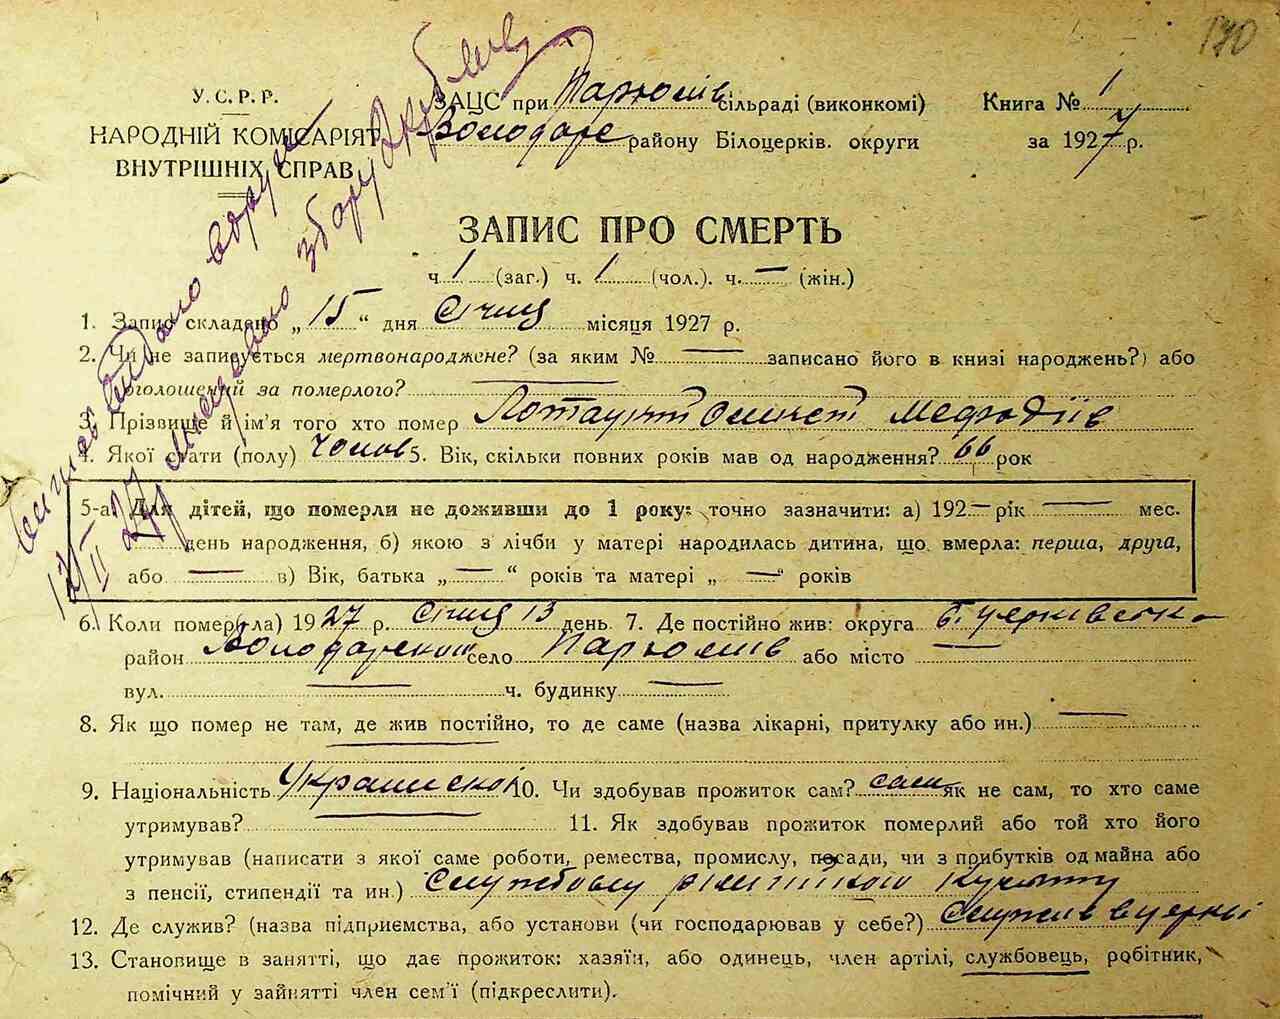 170
У.С.Р.Р.
НАРОДНІЙ КОМІСАРІЯТ
ВНУТРІШНІХ СПРАВ
ЗАЦС при сільраді (виконкомі)
Володарс району Білоцерків. округи
Книга № 1
за 1927 р.
ЗАПИС ПРО СМЕРТЬ
ч. 1 (заг.) ч. 1 (чол.). ч. — (жін.)
1. Запис складено „ 15 “ дня Січня місяця 1927 р.
2. Чи не записується мертвонароджене? (за яким № — записано його в книзі народжень?) або
оголошений за померлого? —
3. Прізвище й ім'я того хто помер Мефодіїв
4. Якої стати (полу) Чолов 5. Вік, скільки повних років мав од народження? 66 рок
5-а. Для дітей, що померли не доживши до 1 року: точно зазначити: а) 192 — рік — мес.
день народження, б) якою з лічби у матері народилась дитина, що вмерла: перша, друга,
або — в) Вік, батька „ — “ років та матері „ — “ років
6. Коли помер(ла) 1927 р. Січня 13 день 7. Де постійно жив: округа Б. церківська
район Володарський село або місто —
вул. — ч. будинку —
8. Як що помер не там, де жив постійно, то де саме (назва лікарні, притулку або ин.) —
9. Національність 10. Чи здобував прожиток сам? сам як не сам, то хто саме
утримував? 11. Як здобував прожиток померлий або той хто його
утримував (написати з якої саме роботи, ремества, промислу, посади, чи з прибутків од майна або
з пенсії, стипендії та ин.) культу
12. Де служив? (назва підприємства, або установи (чи господарював у себе?) Служив в церкві
13. Становище в занятті, що дає прожиток: хазяїн, або одинець, член артілі, службовець, робітник,
помічний у зайнятті член сем'ї (підкреслити).